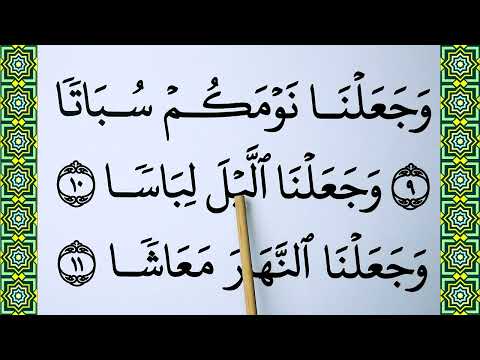 وَجَعَلۡنَا نَوۡمَكُمۡ سُبَاتٗا
٩ وَجَعَلۡنَا ٱلَّيۡلَ لِبَاسٗا ١٠
وَجَعَلۡنَا ٱلنَّهَارَ مَعَاشٗا ١١